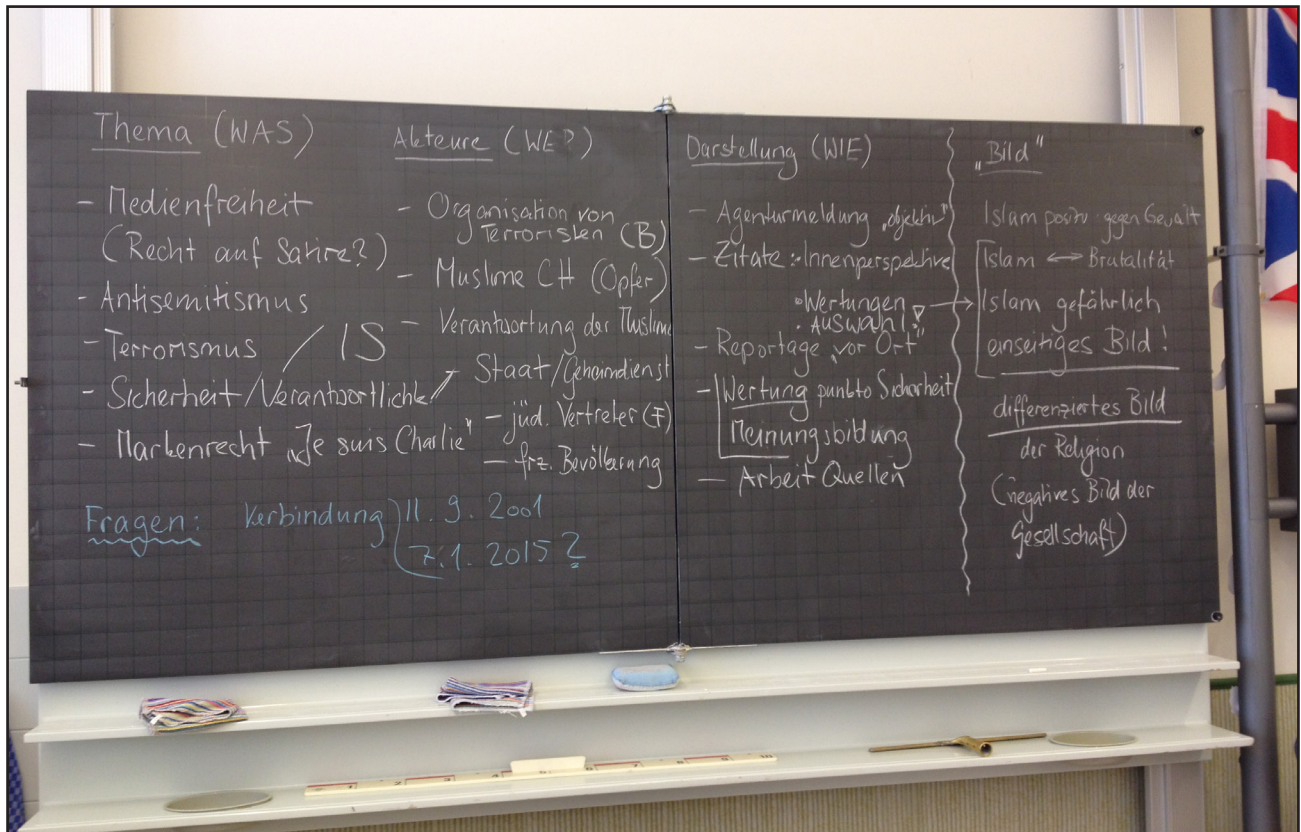 Thema (WAS)
- Medienfreiheit
(Recht auf Satire?)
- Antisemitismus
- Terrorismus / IS
- Sicherheit/Verantwortlichk
- Markenrecht „Je suis Charlie"
Fragen: Verbindung 11.9.2001
7.1.2015 ?
Akteure (WER)
- Organisation von
Terroristen (B)
- Muslime CH (Opfer)
- Verantwortung der Muslime
- Staat/Geheimdienst
- jüd. Vertreter (F)
- frz. Bevölkerung
Darstellung (WIE)
- Agenturmeldung „objektiv"
- Zitate: • Innenperspektive
• Wertungen →
• Auswahl!
- Reportage „vor Ort"
- Wertung punkto Sicherheit
Meinungsbildung
- Arbeit Quellen
„Bild"
Islam positiv: gegen Gewalt
Islam ↔ Brutalität
Islam gefährlich
einseitiges Bild!
differenziertes Bild
der Religion
(negatives Bild der
Gesellschaft)
1 2 3 4 5 6 7 8 9 10